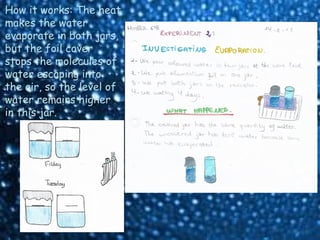 How it works: The heat
makes the water
evaporate in both jars,
but the foil cover
stops the molecules of
water escaping into
the air, so the level of
water remains higher
in this jar.
Friday
Tuesday
EXPERIMENT 2:
INVESTIGATING EVAPORATION.
1- We put coloured water in two jars at the same level.
2- We put aluminium foil on one jar.
3- We put both jars on the radiator.
4- We waiting 4 days.
WHAT HAPPENED.
The covered jar has the same quantity of water.
The uncovered jar has less water because some
water has evaporated.